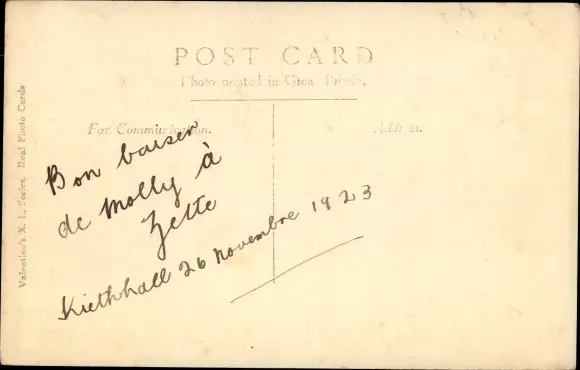 POST CARD
Photo printed in Great Britain.
For Communication.
Address.
Bon baiser
de Molly à
Zette
Kiethhall 26 novembre 1923
Valentine's X. L. Series. Real Photo Cards